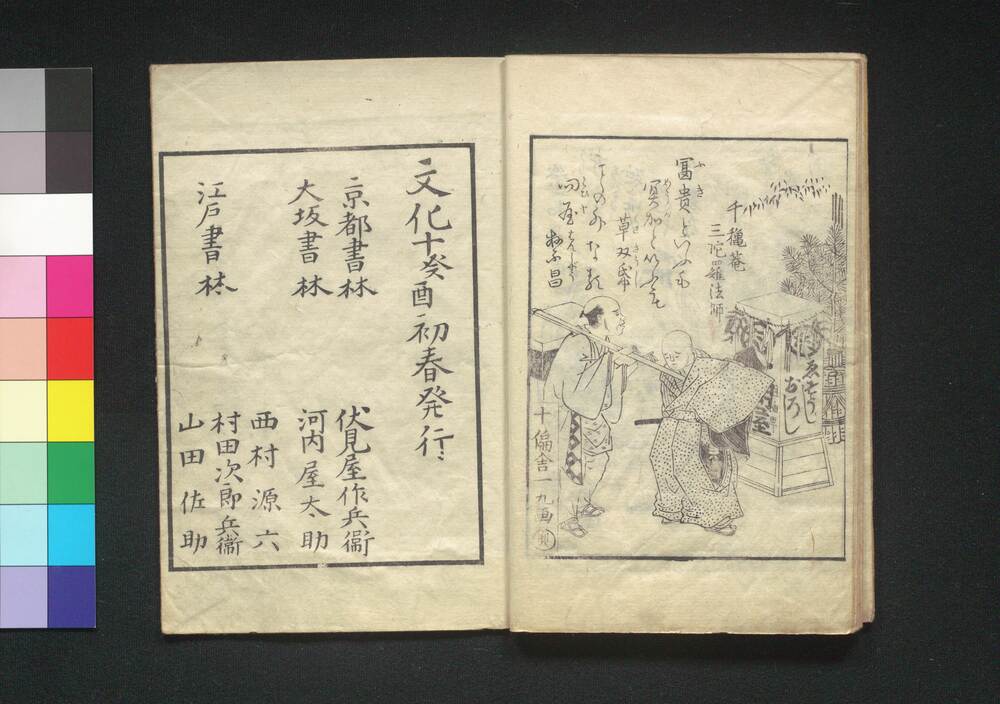 千穐菴
三陀羅法師
富貴といふも
冥加といふも
草双帋
十偏舎一九画
ゑぞうし
おろし
文化十癸酉初春発行
京都書林 伏見屋作兵衞
大坂書林 河内屋太助
江戸書林 西村源六
村田次郎兵衞
山田佐助